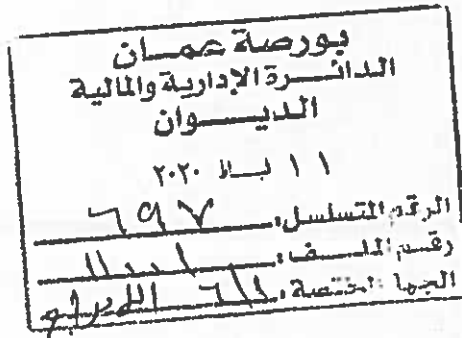 بورصة عمان
الدائرة الإدارية والمالية
الديوان
١١ ٢٠٢٠
الرقم المتسلسل: ٦٩٧
رقم الملف:
الجهة المختصة: